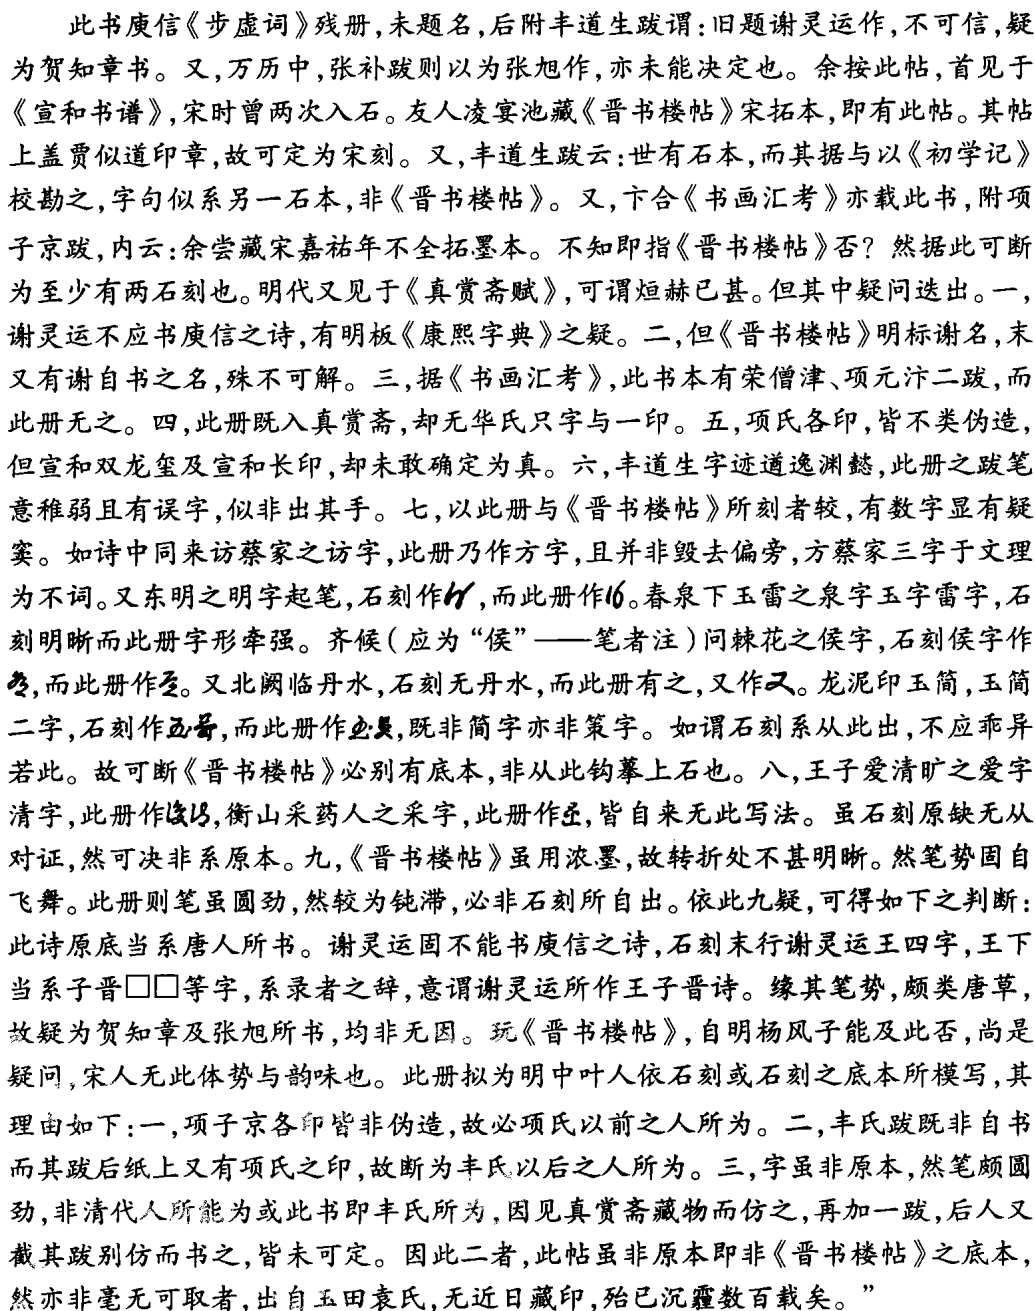 此书庾信《步虚词》残册,未题名,后附丰道生跋谓:旧题谢灵运作,不可信,疑
为贺知章书。又,万历中,张补跋则以为张旭作,亦未能决定也。余按此帖,首见于
《宣和书谱》,宋时曾两次入石。友人凌宴池藏《晋书楼帖》宋拓本,即有此帖。其帖
上盖贾似道印章,故可定为宋刻。又,丰道生跋云:世有石本,而其据与以《初学记》
校勘之,字句似系另一石本,非《晋书楼帖》。又,卞合《书画汇考》亦载此书,附项
子京跋,内云:余尝藏宋嘉祐年不全拓墨本。不知即指《晋书楼帖》否?然据此可断
为至少有两石刻也。明代又见于《真赏斋赋》,可谓烜赫已甚。但其中疑问迭出。一,
谢灵运不应书庾信之诗,有明板《康熙字典》之疑。二,但《晋书楼帖》明标谢名,末
又有谢自书之名,殊不可解。三,据《书画汇考》,此书本有荣僧津、项元汴二跋,而
此册无之。四,此册既入真赏斋,却无华氏只字与一印。五,项氏各印,皆不类伪造,
但宣和双龙玺及宣和长印,却未敢确定为真。六,丰道生字迹遒逸渊懿,此册之跋笔
意稚弱且有误字,似非出其手。七,以此册与《晋书楼帖》所刻者较,有数字显有疑
窦。如诗中同来访蔡家之访字,此册乃作方字,且并非毁去偏旁,方蔡家三字于文理
为不词。又东明之明字起笔,石刻作,而此册作。春泉下玉雷之泉字玉字雷字,石
刻明晰而此册字形牵强。齐候(应为“侯”——笔者注)问棘花之侯字,石刻侯字作
,而此册作。又北阙临丹水,石刻无丹水,而此册有之,又作。龙泥印玉简,玉简
二字,石刻作,而此册作,既非简字亦非策字。如谓石刻系从此出,不应乖异
若此。故可断《晋书楼帖》必别有底本,非从此钩摹上石也。八,王子爱清旷之爱字
清字,此册作,衡山采药人之采字,此册作,皆自来无此写法。虽石刻原缺无从
对证,然可决非系原本。九,《晋书楼帖》虽用浓墨,故转折处不甚明晰。然笔势固自
飞舞。此册则笔虽圆劲,然较为钝滞,必非石刻所自出。依此九疑,可得如下之判断:
此诗原底当系唐人所书。谢灵运固不能书庾信之诗,石刻末行谢灵运王四字,王下
当系子晋□□等字,系录者之辞,意谓谢灵运所作王子晋诗。缘其笔势,颇类唐草,
故疑为贺知章及张旭所书,均非无因。玩《晋书楼帖》,自明杨风子能及此否,尚是
疑问,宋人无此体势与韵味也。此册拟为明中叶人依石刻或石刻之底本所模写,其
理由如下:一,项子京各印皆非伪造,故必项氏以前之人所为。二,丰氏跋既非自书
而其跋后纸上又有项氏之印,故断为丰氏以后之人所为。三,字虽非原本,然笔颇圆
劲,非清代人所能为或此书即丰氏所为,因见真赏斋藏物而仿之,再加一跋,后人又
截其跋别仿而书之,皆未可定。因此二者,此帖虽非原本即非《晋书楼帖》之底本,
然亦非毫无可取者,出自玉田袁氏,无近日藏印,殆已沉霾数百载矣。”